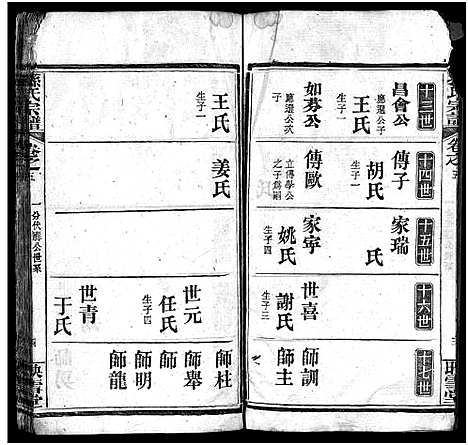 十三世
昌會公
應運公子
王氏
生子一
如芬公
應選公次子
十四世
傳子
胡氏
生子一
傳歐
立傳學公之子為嗣
十五世
家瑞
氏
家寜
姚氏
生子四
十六世
世喜
謝氏
生子三
十七世
師訓
師主
映雪堂
氏宗譜
卷之五
一分代海公世系
王氏
生子一
姜氏
世元
任氏
生子四
世青
于氏
師柱
師舉
師明
師龍
四
映雪堂